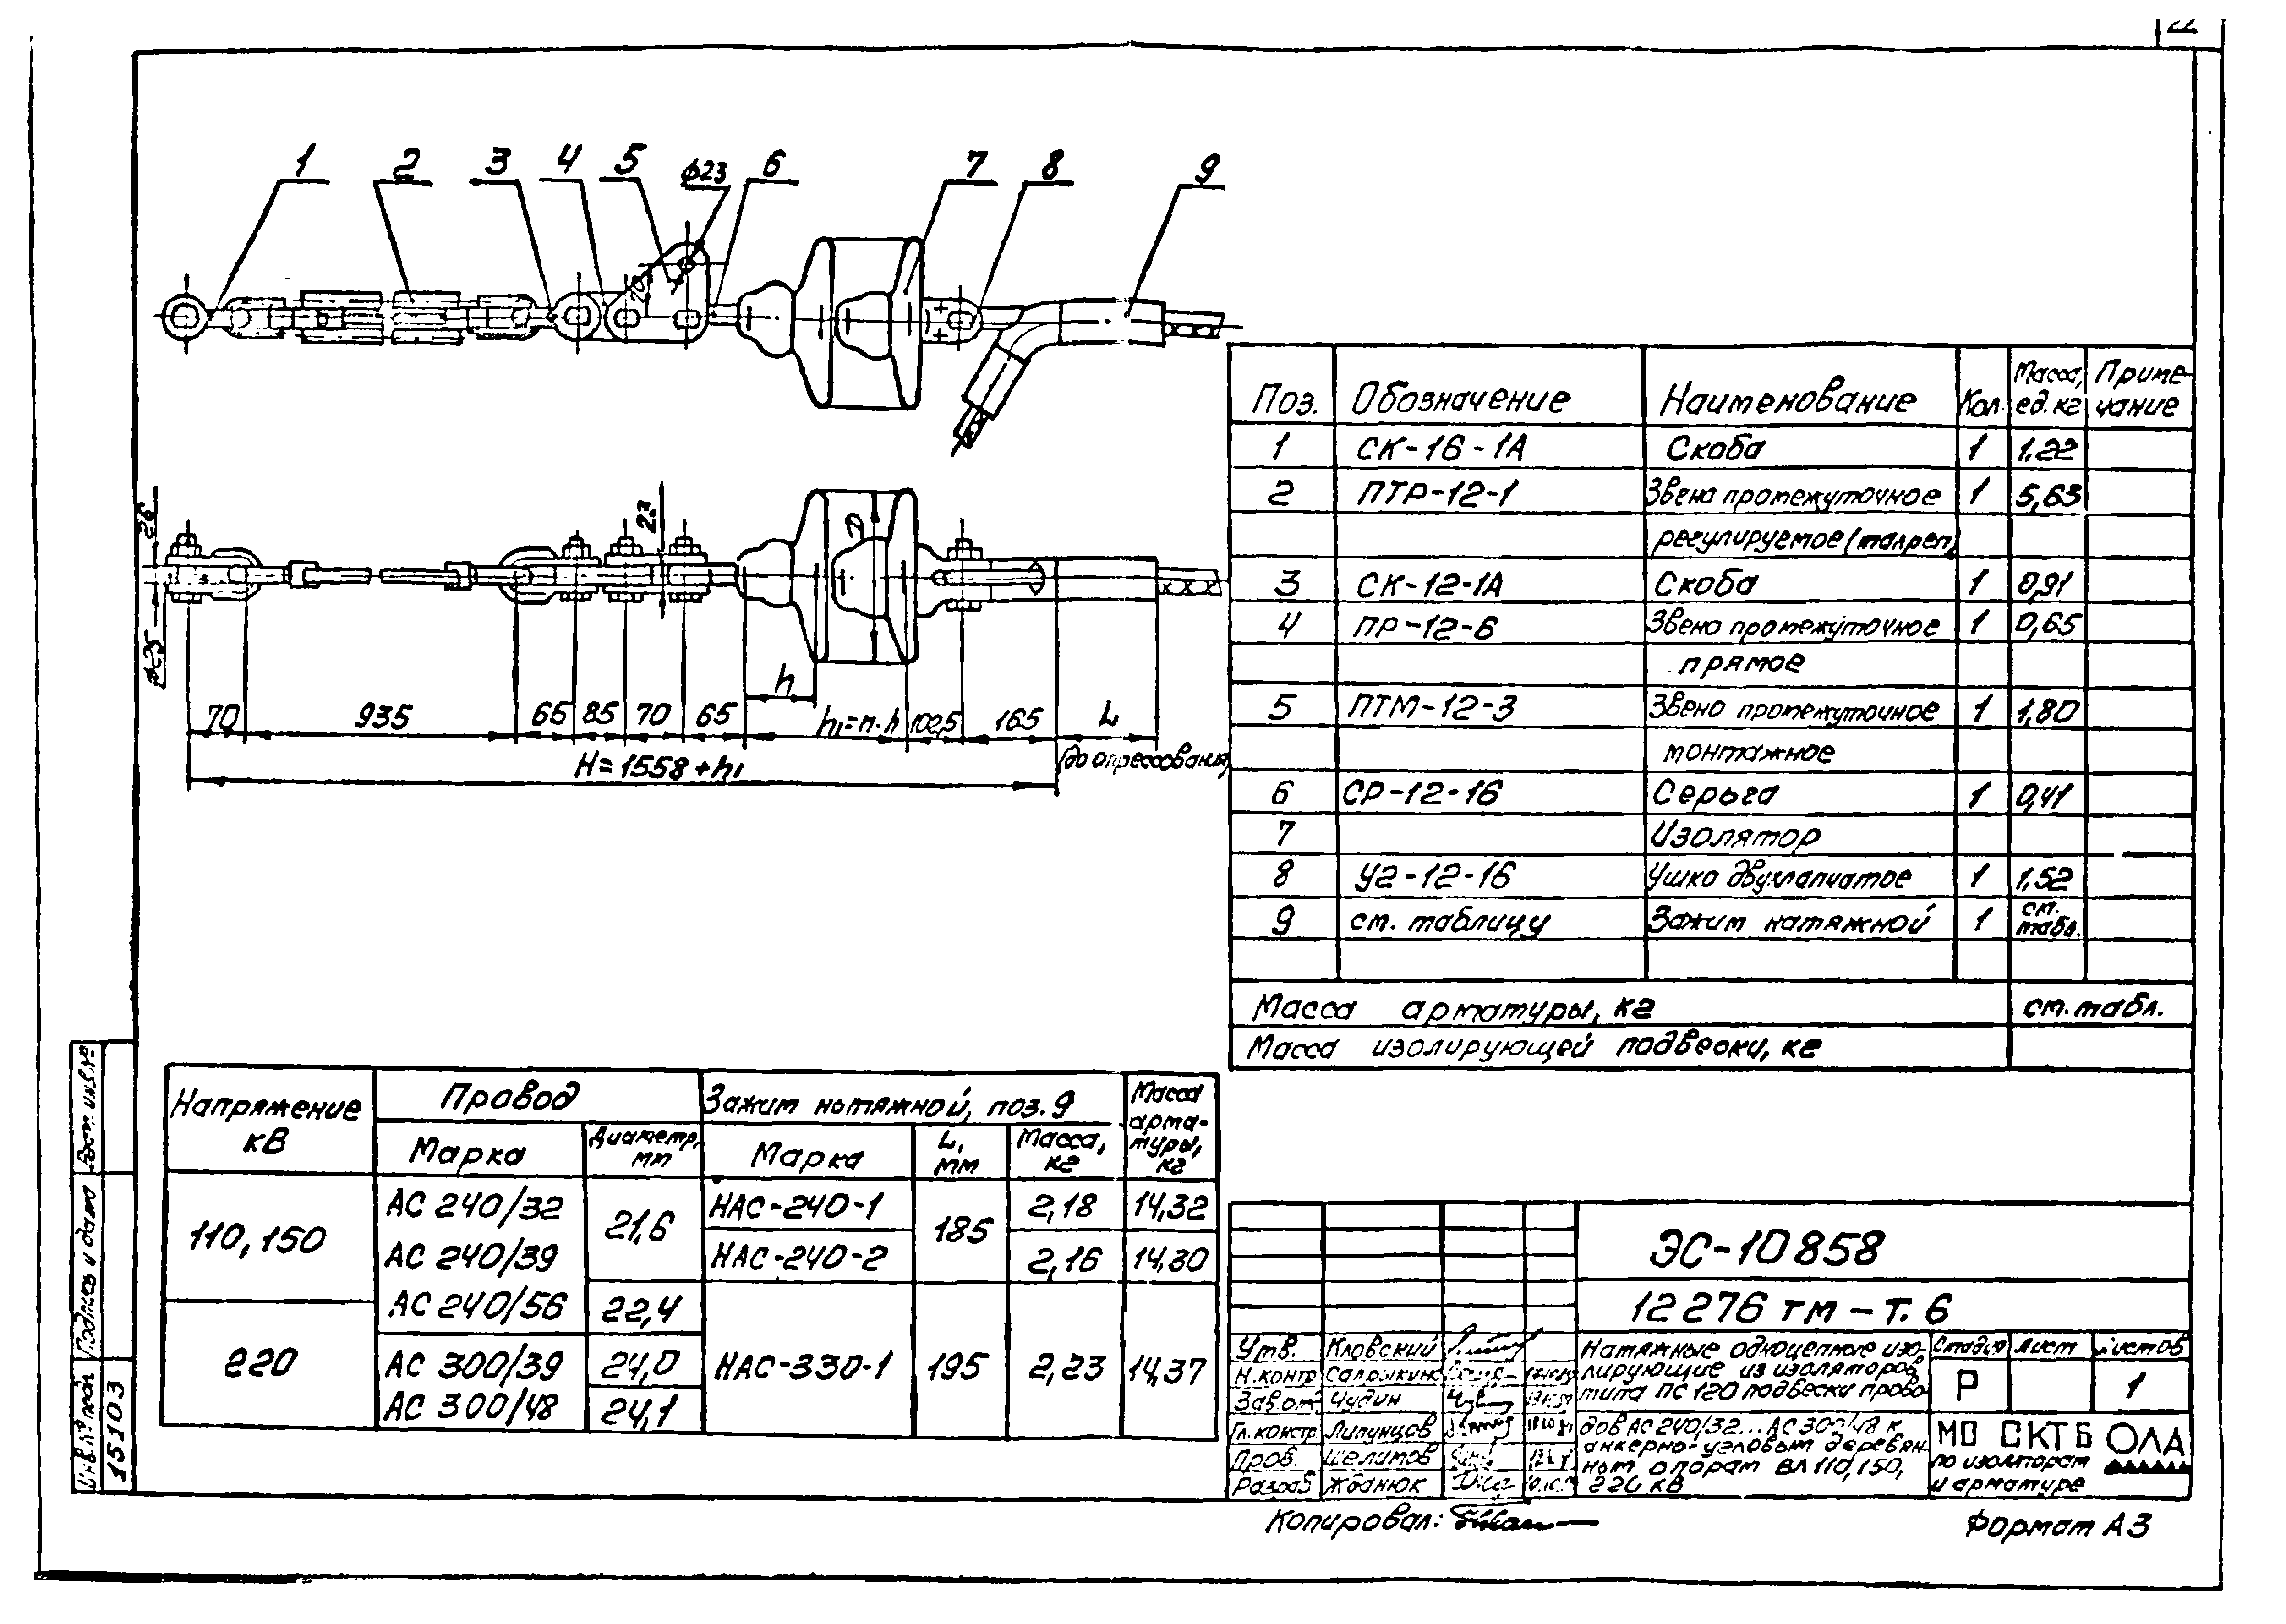 22
1 2 3 4 5 ф23 6 7 8 9
70
26
ф25
22
D
h
70 935 65 85 70 65 h1=n·h 102,5 165 L
(до опрессования)
H=1558+h1
Поз. Обозначение Наименование Кол. Масса, ед. кг Приме-чание
1 СК-16-1А Скоба 1 1,22
2 ПТР-12-1 Звено промежуточное 1 5,63
регулируемое (талреп)
3 СК-12-1А Скоба 1 0,91
4 ПР-12-6 Звено промежуточное 1 0,65
прямое
5 ПТМ-12-3 Звено промежуточное 1 1,80
монтажное
6 СР-12-16 Серьга 1 0,41
7 Изолятор
8 У2-12-16 Ушко двухлапчатое 1 1,52
9 см. таблицу Зажим натяжной 1 см. табл.
Масса арматуры, кг см. табл.
Масса изолирующей подвески, кг
Напряжение кВ Провод Зажим натяжной, поз. 9 Масса арма-туры, кг
Марка Диаметр, мм Марка L, мм Масса, кг
110, 150 АС 240/32 21,6 НАС-240-1 185 2,18 14,32
АС 240/39 НАС-240-2 2,16 14,30
АС 240/56 22,4
220 АС 300/39 24,0 НАС-330-1 195 2,23 14,37
АС 300/48 24,1
ЭС-10858
12276 тм - т. 6
Утв. Кловский
Н.контр Сапрыкин
Зав.от. Чудин
Гл.констр Липунцов
Пров. Шелимов
Разраб Жданюк
Натяжные одноцепные изо-
лирующие из изоляторов
типа ПС 120 подвески прово-
дов АС 240/32...АС 300/48 к
анкерно-угловым деревян-
ным опорам ВЛ 110, 150,
220 кВ
Стадия Лист Листов
Р 1
МО СКТБ ОЛА
по изоляторам
и арматуре
Взам. инв.№
Подпись и дата
Инв.№ подл.
15103
Копировал:
Формат А3